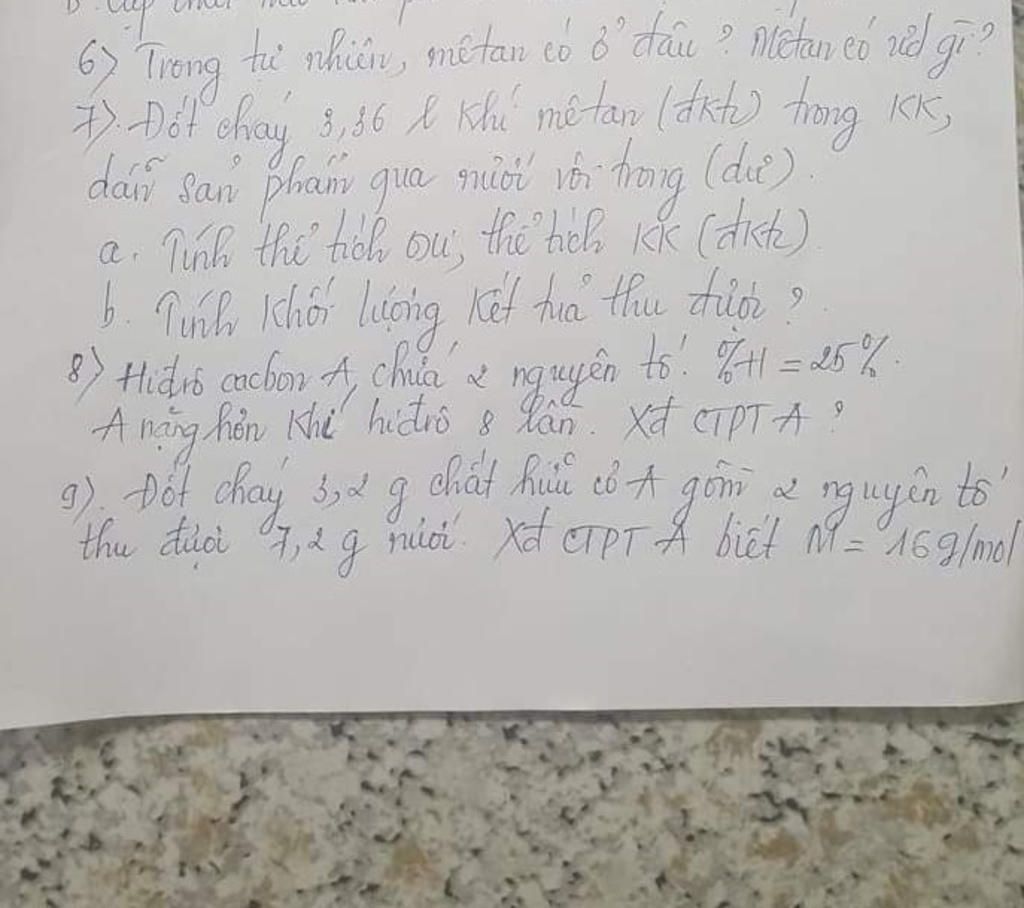 6) Trong tự nhiên, mêtan có ở đâu? Mêtan có ưd gì?
7). Đốt cháy 3,36 l khí mêtan (đktc) trong KK,
dẫn sản phẩm qua nước vôi trong (dư).
a. Tính thể tích oxi, thể tích KK (đktc)
b. Tính khối lượng kết tủa thu được?
8) Hiđrô cacbon A, chứa 2 nguyên tố. %H = 25%.
A nặng hơn khí hiđrô 8 lần. Xđ CTPT A?
9). Đốt cháy 3,2 g chất hữu cơ A gồm 2 nguyên tố
thu được 7,2 g nước. Xđ CTPT A biết M = 16g/mol